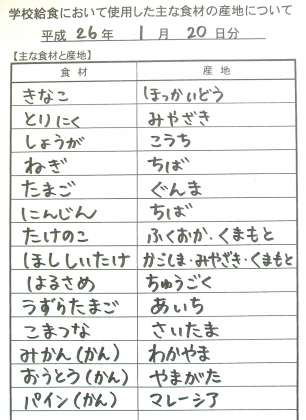 学校給食において使用した主な食材の産地について
平成 26年 1月 20日分
【主な食材と産地】
食材 産地
きなこ ほっかいどう
とりにく みやざき
しょうが こうち
ねぎ ちば
たまご ぐんま
にんじん ちば
たけのこ ふくおか・くまもと
ほししいたけ かごしま・みやざき・くまもと
はるさめ ちゅうごく
うずらたまご あいち
こまつな さいたま
みかん(かん) わかやま
おうとう(かん) やまがた
パイン(かん) マレーシア